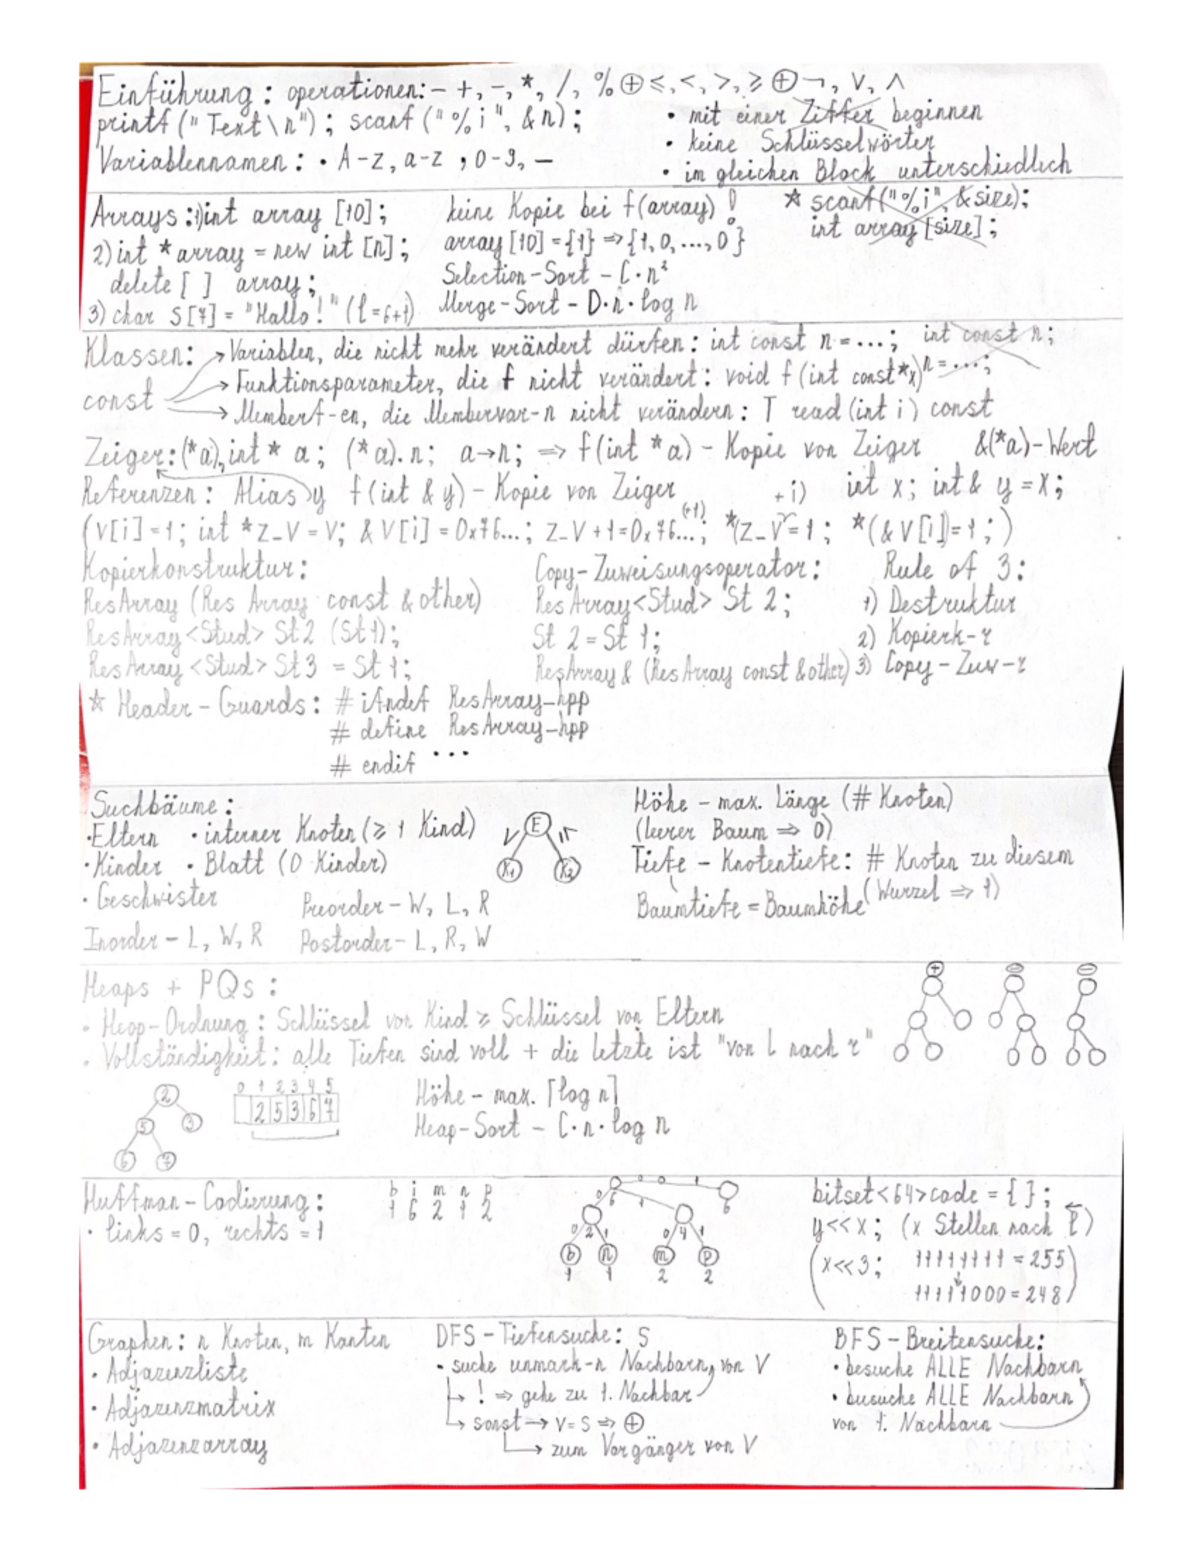 Einführung: operationen: - +, -, *, /, % ⊕ ≤, <, >, ≥ ⊕ ¬, ∨, ∧
printf ("Text \n"); scanf ("%i", &n);
• mit einer Ziffer beginnen
• keine Schlüsselwörter
Variablennamen: • A-Z, a-z, 0-9, _
• im gleichen Block unterschiedlich
Arrays: 1) int array [10];
2) int * array = new int [n];
delete [ ] array;
3) char S[7] = "Hallo!" (l=6+1)
keine Kopie bei f(array) !
array [10] = {1} => {1, 0, ..., 0}
Selection-Sort - C·n²
Merge-Sort - D·n·log n
* scanf("%i", &size);
int array [size];
Klassen:
const
→ Variablen, die nicht mehr verändert dürfen: int const n = ...; int const n;
n = ...;
→ Funktionsparameter, die f nicht verändert: void f (int const*x)
→ Memberf-en, die Membervar-n nicht verändern: T read (int i) const
Zeiger: (*a), int * a; (*a).n; a→n; => f(int * a) - Kopie von Zeiger &(*a)-Wert
Referenzen: Alias y f(int & y) - Kopie von Zeiger +i) int x; int& y = x;
(V[i]=1; int *z_V = V; &V[i] = 0x76...; z_V+1=0x76...(+1); *(z_V = 1; *(&V[i])=1;)
Kopierkonstruktur:
ResArray (Res Array const & other)
ResArray<Stud> St2 (St1);
ResArray <Stud> St3 = St1;
Copy-Zuweisungsoperator:
Res Array<Stud> St 2;
St 2 = St 1;
ResArray & (ResArray const & other)
Rule of 3:
1) Destruktur
2) Kopierk-r
3) Copy-Zuw-r
* Header-Guards: # ifndef ResArray_hpp
# define ResArray_hpp
# endif ...
Suchbäume:
• Eltern • interner Knoten (≥ 1 Kind)
• Kinder • Blatt (0 Kinder)
• Geschwister
Preorder - W, L, R
Inorder - L, W, R Postorder - L, R, W
E
K1 K2
Höhe - max. Länge (# Knoten)
(leerer Baum => 0)
Tiefe - Knotentiefe: # Knoten zu diesem
(Wurzel => 1)
Baumtiefe = Baumhöhe
Heaps + PQs:
• Heap-Ordnung: Schlüssel von Kind ≥ Schlüssel von Eltern
• Vollständigkeit: alle Tiefen sind voll + die letzte ist "von l nach r"
+ - -
2
5 3
6 7
0 1 2 3 4 5
2 5 3 6 7
Höhe - max. ⌈log n⌉
Heap-Sort - C·n·log n
Huffman-Codierung:
• links = 0, rechts = 1
b i m n p
1 6 2 1 2
0 0 1
6 1 6
0 2 1 0 4 1
b n m p
1 1 2 2
bitset<64>code = { };
y<<x; (x Stellen nach l)
(x<<3; 11111111 = 255
11111000 = 248)
Graphen: n Knoten, m Kanten
• Adjazenzliste
• Adjazenzmatrix
• Adjazenzarray
DFS - Tiefensuche: S
• suche unmark-n Nachbarn von V
↳ ! => gehe zu 1. Nachbar
↳ sonst → V=S => ⊕
↳ zum Vorgänger von V
BFS - Breitensuche:
• besuche ALLE Nachbarn
• busuche ALLE Nachbarn
von 1. Nachbarn